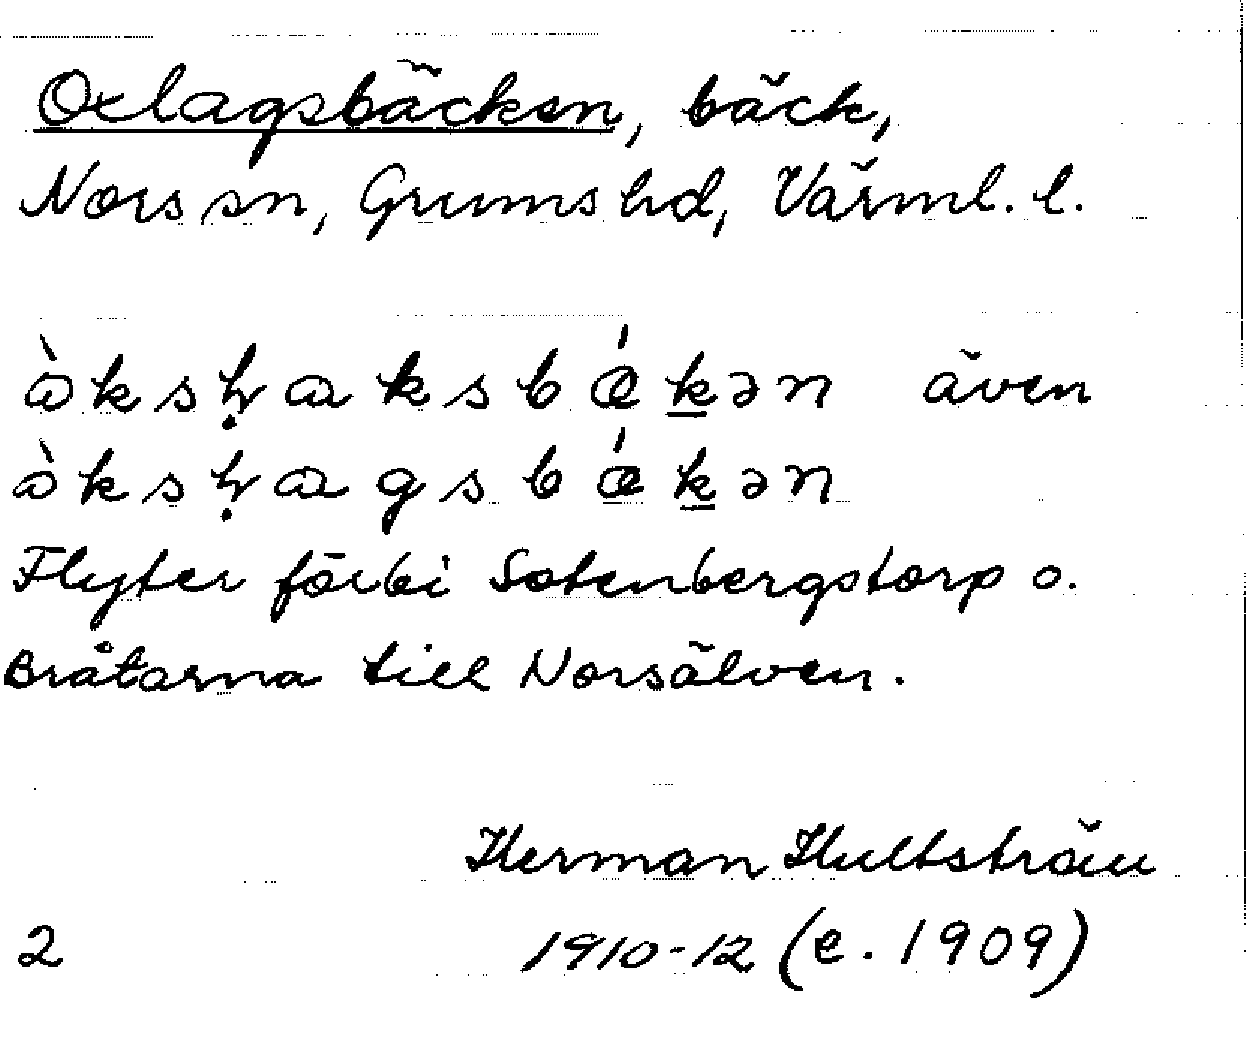 Oxlagsbäcken, bäck,
Nors sn, Grums hd, Värml. l.
även
Flyter förbi Sotenbergstorp o.
Bråtarna till Norsälven.
Herman Hultsträu
2 1910-12 (e. 1909)